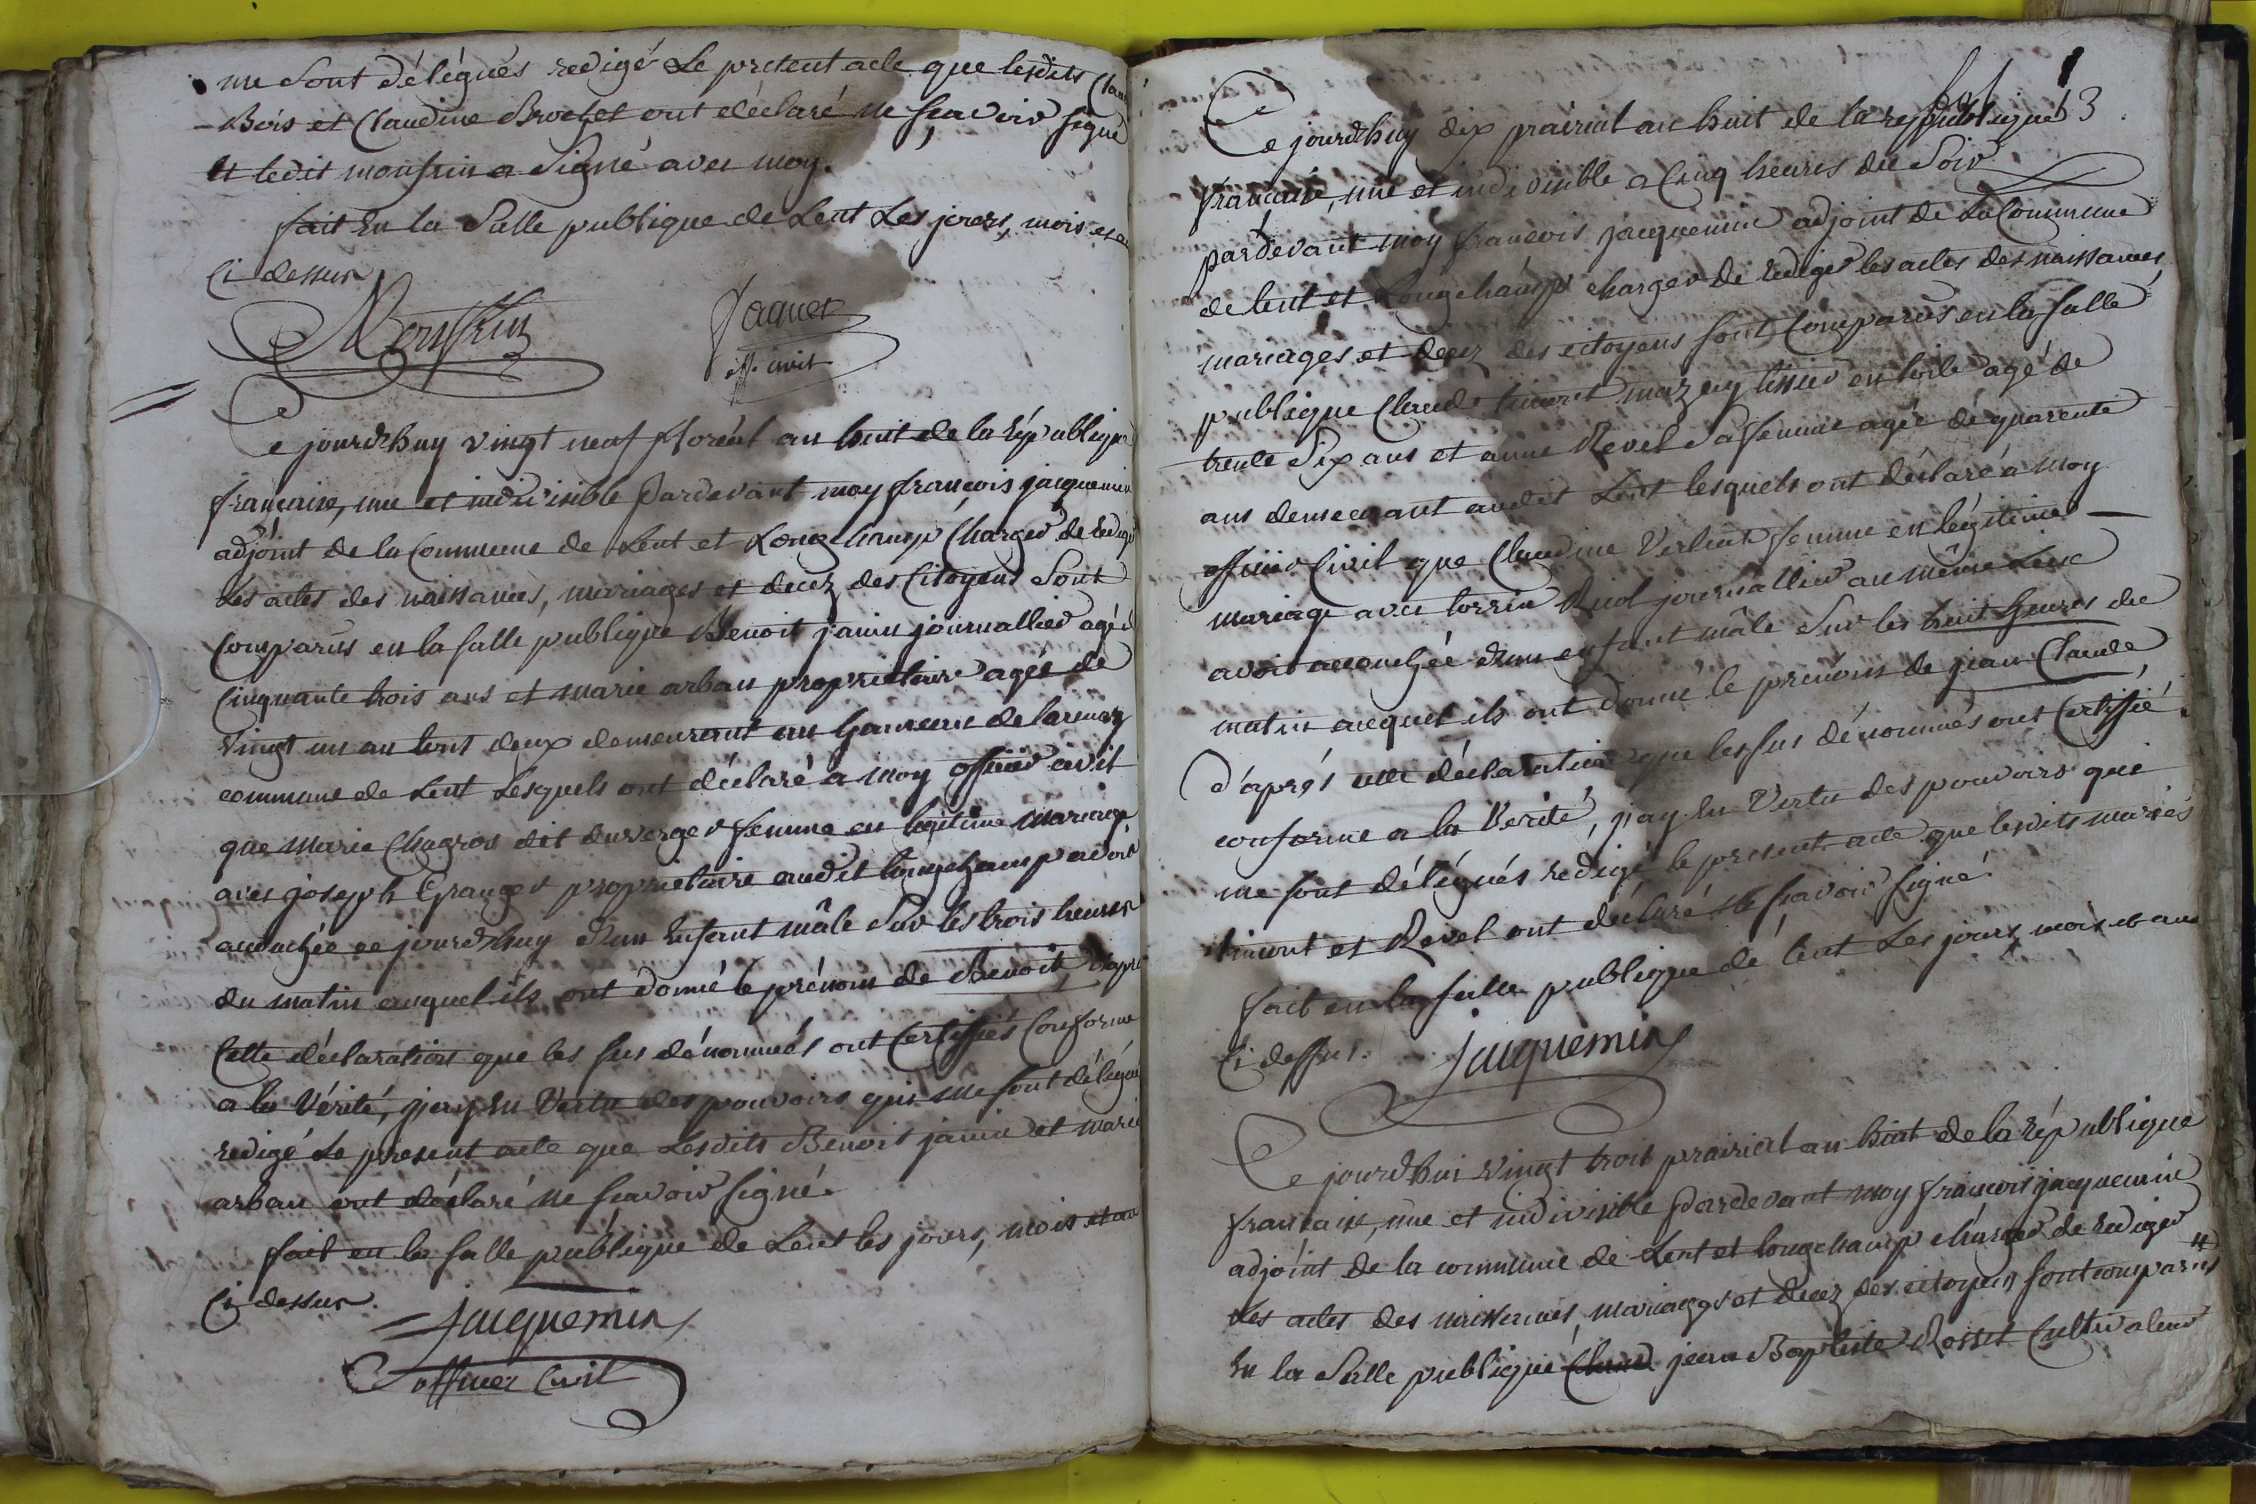 me Sont délégués redigé Le present acte que lesdits Clau
Bois et Claudine Brochet ont déclaré ne scavoir signé
et ledit monfrin a Signé avec moy.
fait En la Salle publique de Lent Les jours, mois et an
Ci dessus
Monfrin
off. civil
Ce jourdhuy vingt neuf floréal an huit de la République
française, une et indivisible Pardevant moy françois jacquemin
adjoint de la Commune de Lent et Longchamp Charger de Rediger
Les actes des naissances, mariages et decez des Citoyens Sont
Comparus en la salle publique Benoit janin journallier agé de
Cinquante trois ans et marie arban proprietaire agée de
vingt un an tout deux demeurant au hameau de
commune de Lent Lesquels ont déclaré a moy officier civil
que marie Chagros dit duverger femme en legitime mariage
avec joseph Granger proprietaire audit Longchamp avoit
accouchée ce jourdhuy d'un Enfant mâle Sur les trois heures
du matin auquel ils ont donné le prénom de Benoit d'après
Cette déclaration que les sus dénommés ont Certiffiés Conforme
a la Vérité, j'ay En Vertu des pouvoirs qui me sont délégués
redigé Le present acte que Lesdits Benoit janin et marie
arban ont déclaré ne scavoir signé.
fait en la salle publique de Lent les jours, mois et an
Ci dessus.
jacquemin
officier Civil
fol 13
Ce jourdhuy dix prairial an huit de la republique
française, une et indivisible a Cinq heures du Soir
pardevant moy françois jacquemin adjoint de La Commune
de lent et Longchamp charger de rediger les actes des naissances,
mariages et decez des citoyens sont Comparus en la salle
publique Claude timont mazuy tissier en toile agé de
trente Six ans et anne Revel Sa femme agée de quarente
ans demeurant audit Lent lesquels ont déclaré a moy
officier Civil que Claudine femme en légitime
mariage avec journallier au même Lieu
avoit accouchée d'un enfant mâle Sur les huit heures du
matin auquel ils ont donné le prénom de jean Claude
d'après cette déclaration que les sus dénommés ont Certiffié
conforme a la Verité, j'ay En Vertu des pouvoirs qui
me sont délégués redigé le present acte que lesdits mariés
timont et Revel ont déclaré ne scavoir signé.
fait en la salle publique de lent Les jours, mois et an
Ci dessus.
jacquemin
Ce jourdhui vingt trois prairial an huit de la république
française, une et indivisible Pardevant moy françois jacquemin
adjoint de la commune de Lent et longchamp charger de Rediger
Les actes des naissances, mariages et decez des citoyens sont comparus
En la Salle publique Claude jean Baptiste Rosset Cultivateur